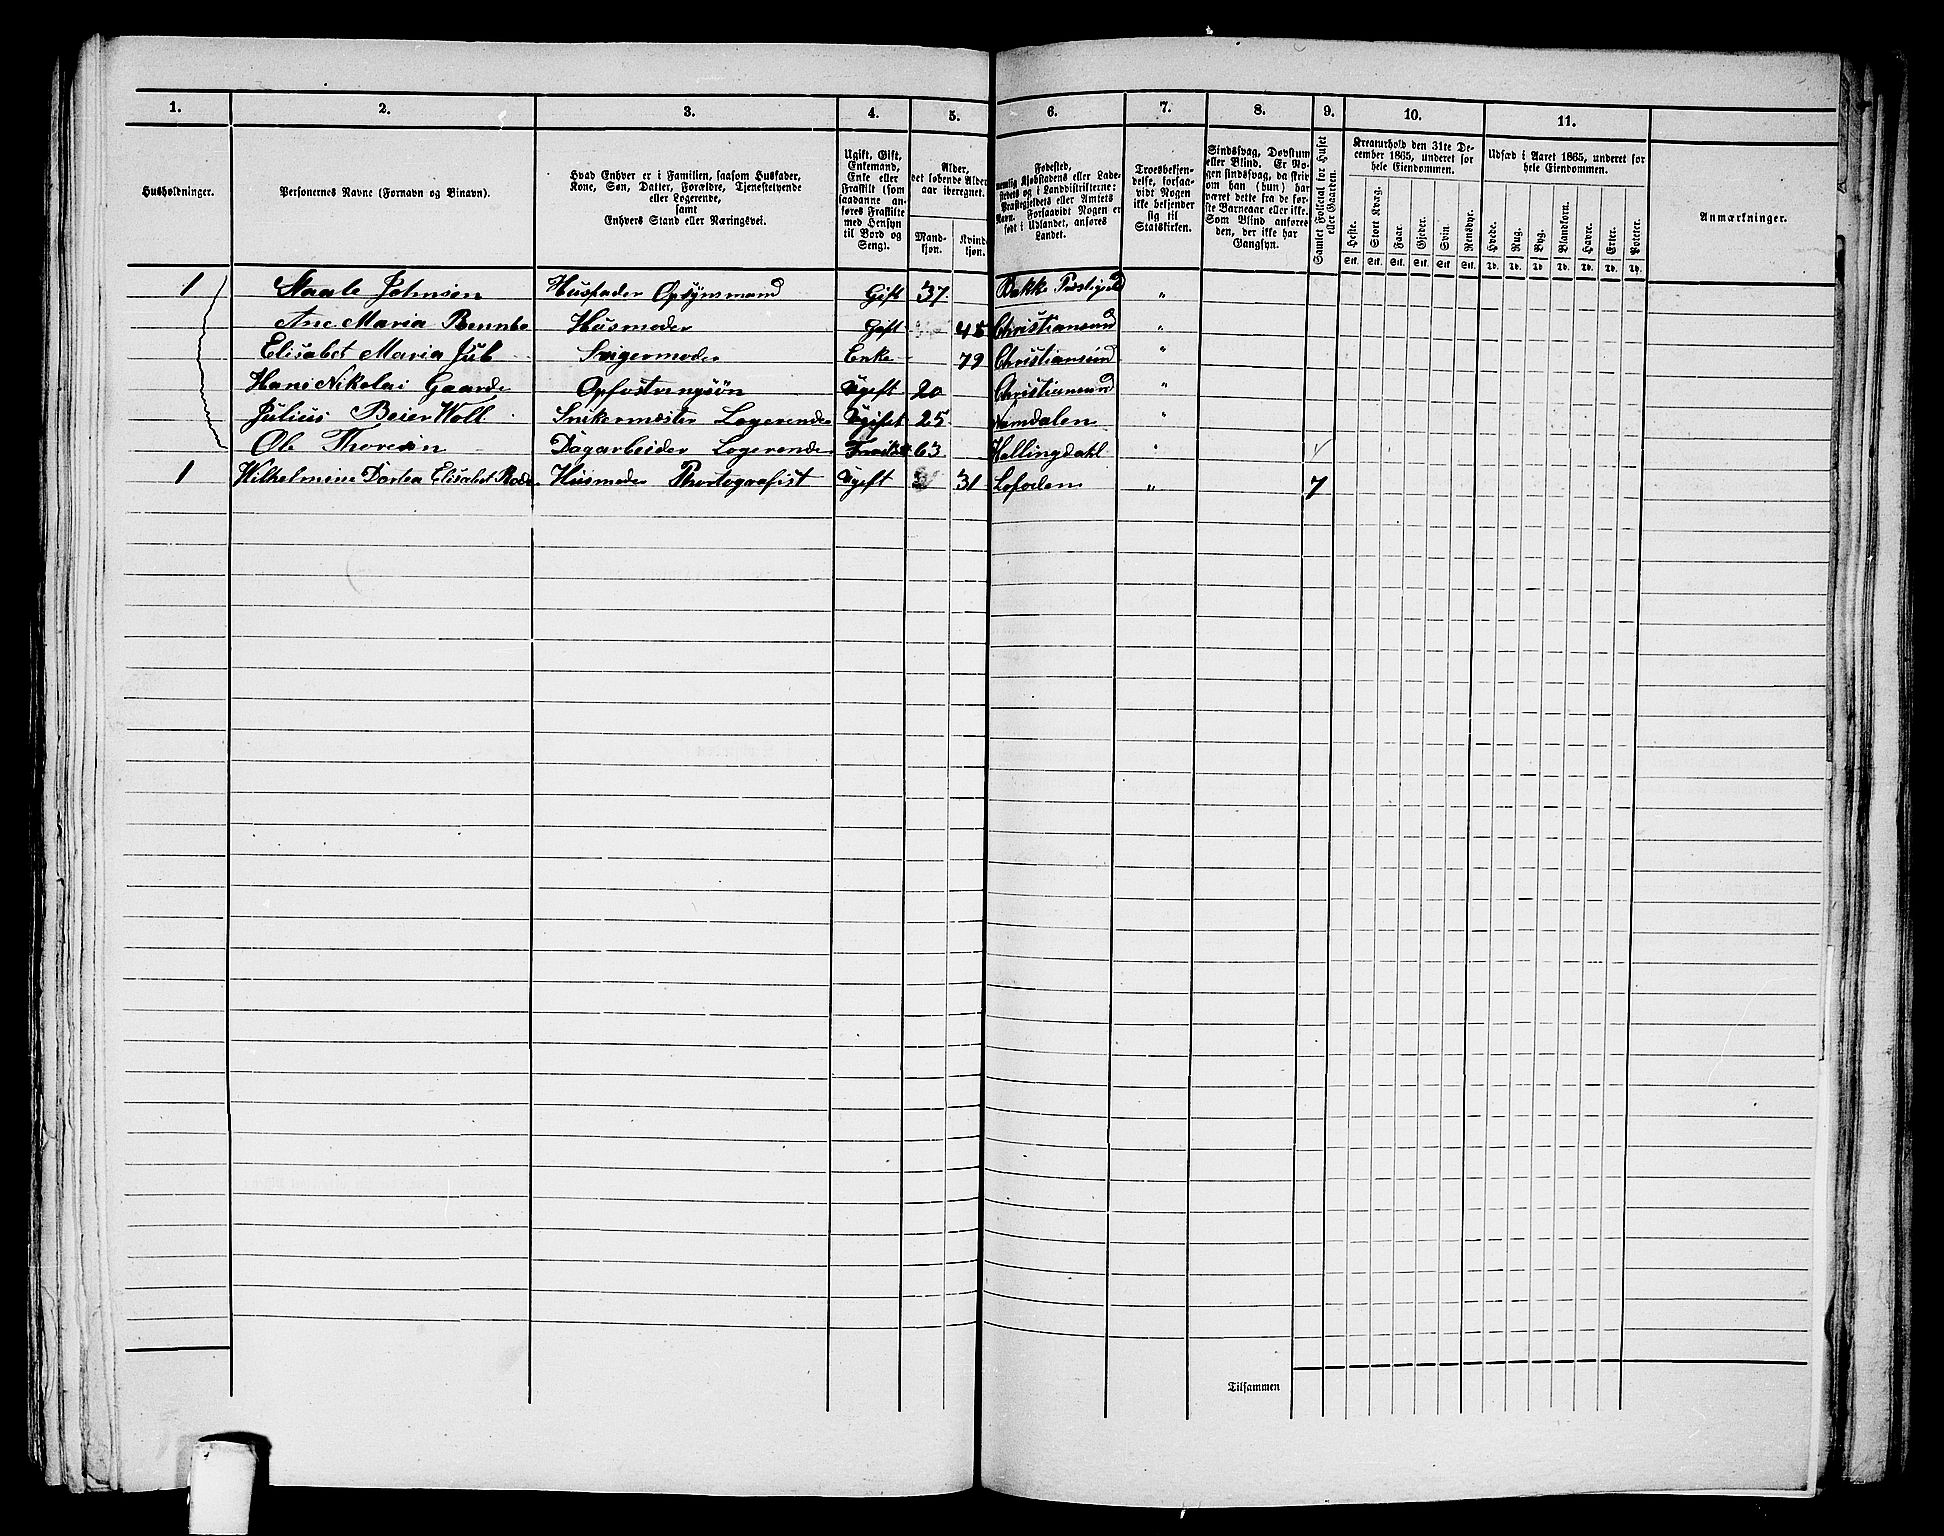 1. 2. 3. 4. 5. 6. 7. 8. 9. 10. 11.
Husholdninger.
Personernes Navne (Fornavn og Binavn).
Hvad Enhver er i Familien, saasom Husfader,
Kone, Søn, Datter, Forældre, Tjenestetyende
eller Logerende,
samt
Enhvers Stand eller Næringsvei.
Ugift, Gift,
Enkemand,
Enke eller
Fraskilt (som
saadanne an-
føres Fraskilte
med Hensyn
til Bord og
Seng).
Alder,
det løbende Alders-
aar iberegnet.
Mand-
kjøn.
Kvind-
kjøn.
Fødested,
nemlig Kjøbstadens eller Lade-
stedets eller i Landdistrikterne:
Præstegjeldets eller Amtets
Navn. Forsaavidt Nogen er
født i Udlandet, anføres
Landet.
Troesbekjen-
delse, forsaa-
vidt Nogen
ikke bekjender
sig til
Statskirken.
Sindssvag, Døvstum
eller Blind. Er No-
gen sindssvag, da skriv
om han (hun) har
været dette fra de før-
ste Barneaar eller ikke.
Som Blind anføres
den, der ikke har
Gangsyn.
Samlet Folketal for Huset
eller Gaarden.
Kreaturhold den 31te De-
cember 1865, underet for
hele Eiendommen.
Heste. Stort Kvæg. Faar. Gjeder. Svin. Rensdyr.
Stk. Stk. Stk. Stk. Stk. Stk.
Udsæd i Aaret 1865, underet for
hele Eiendommen.
Hvede. Rug. Byg. Blandkorn. Havre. Erter. Poteter.
Td. Td. Td. Td. Td. Td. Td.
Anmærkninger.
1 Staale Johnsen Husfader Opsynsmand Gift 37. Bakke Præstgjeld "
Ane Maria Husmoder Gift 45 Christiansund "
Elisabet Maria Jub Svigermoder Enke 79 Christiansund "
Hans Nikolai Gaarde Opfostringsøn Ugift 20 Christiansund "
Julius Beier Woll Snikermester Logerende Ugift 25. Namdalen "
Ole Thoresen Dagarbeider Logerende 63 Hallingdahl "
1 Wilhelmine Dortea Elisabet Husmoder Phortografist Ugift 31 Lofoden " 7
Tilsammen